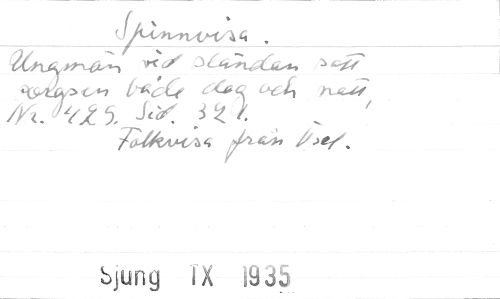 Spinnvisa.
Ungmän vid sländan satt
sorgsen både dag och natt,
Nr. 429. Sid. 321.
Folkvisa från Ösel.
Sjung IX 1935